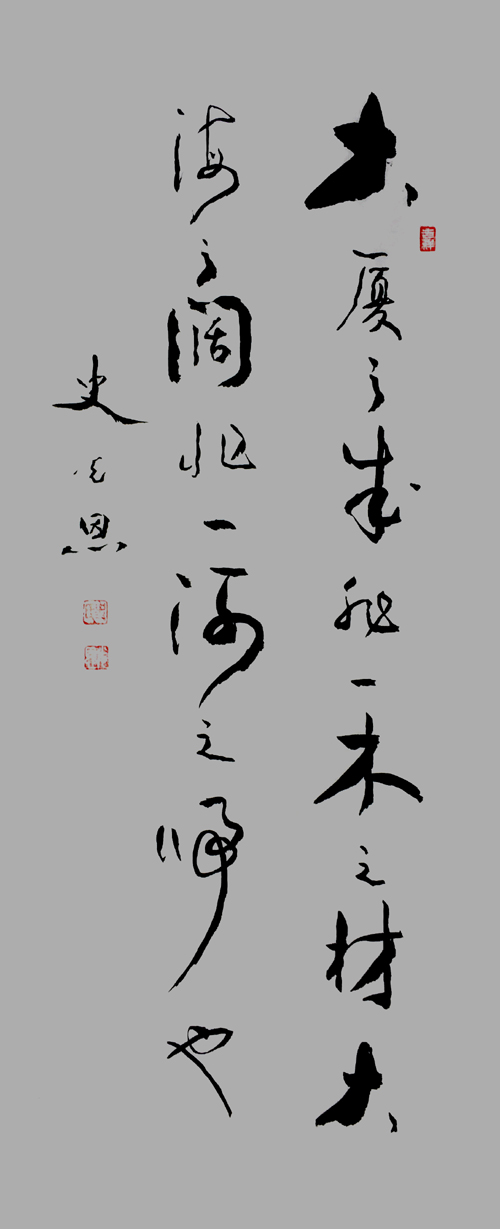 大厦之成非一木之材大
海之阔非一河之归也
史 恩